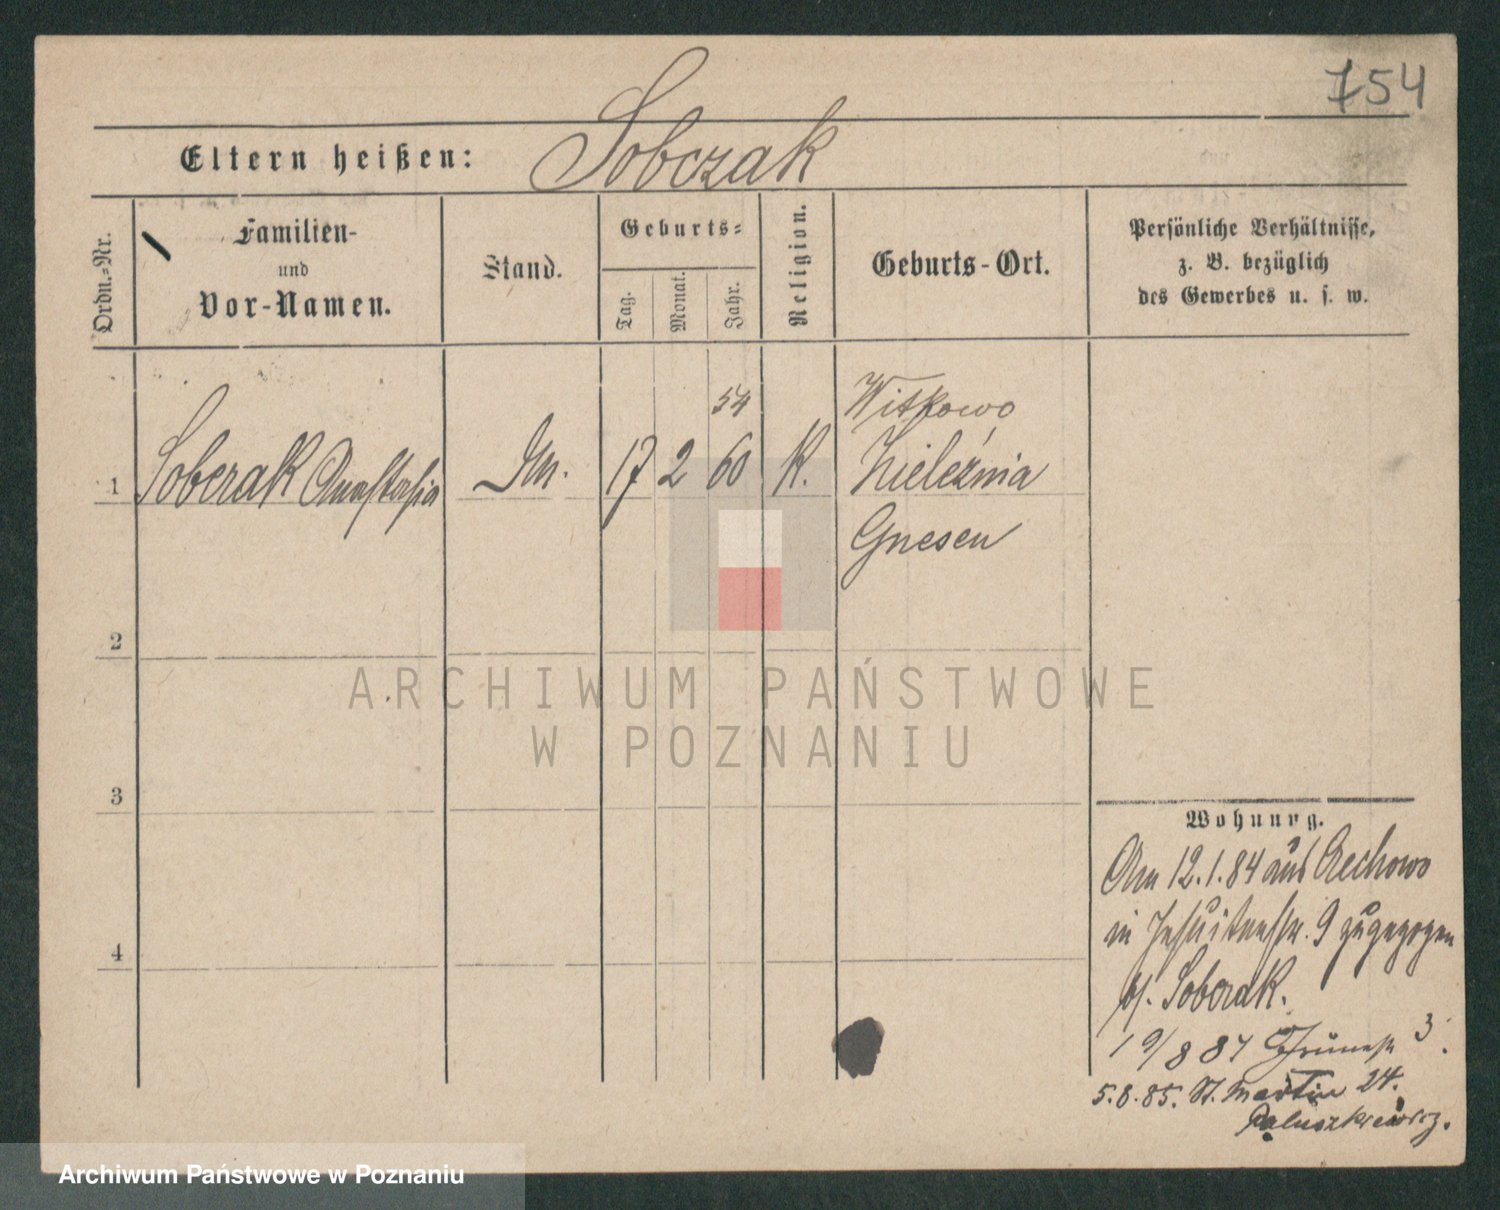 754
Eltern heißen: Sobczak
Ordn.-Nr.
Familien-
und
Vor-Namen.
Stand.
Geburts-
Tag.
Monat.
Jahr.
Religion.
Geburts-Ort.
Persönliche Verhältnisse,
z. B. bezüglich
des Gewerbes u. s. w.
54 Witkowo
1 Sobczak Anastasia 17 2 60 K.
Gnesen
2
ARCHIWUM PAŃSTWOWE
W POZNANIU
3
Wohnung.
Am 12.1.84 aus
in Jesuitenstr. 9 zugezogen
b/. Sobczak.
Grünestr 3.
5.8.85. St. Martin 24.
Paluszkiewicz.
4
Archiwum Państwowe w Poznaniu